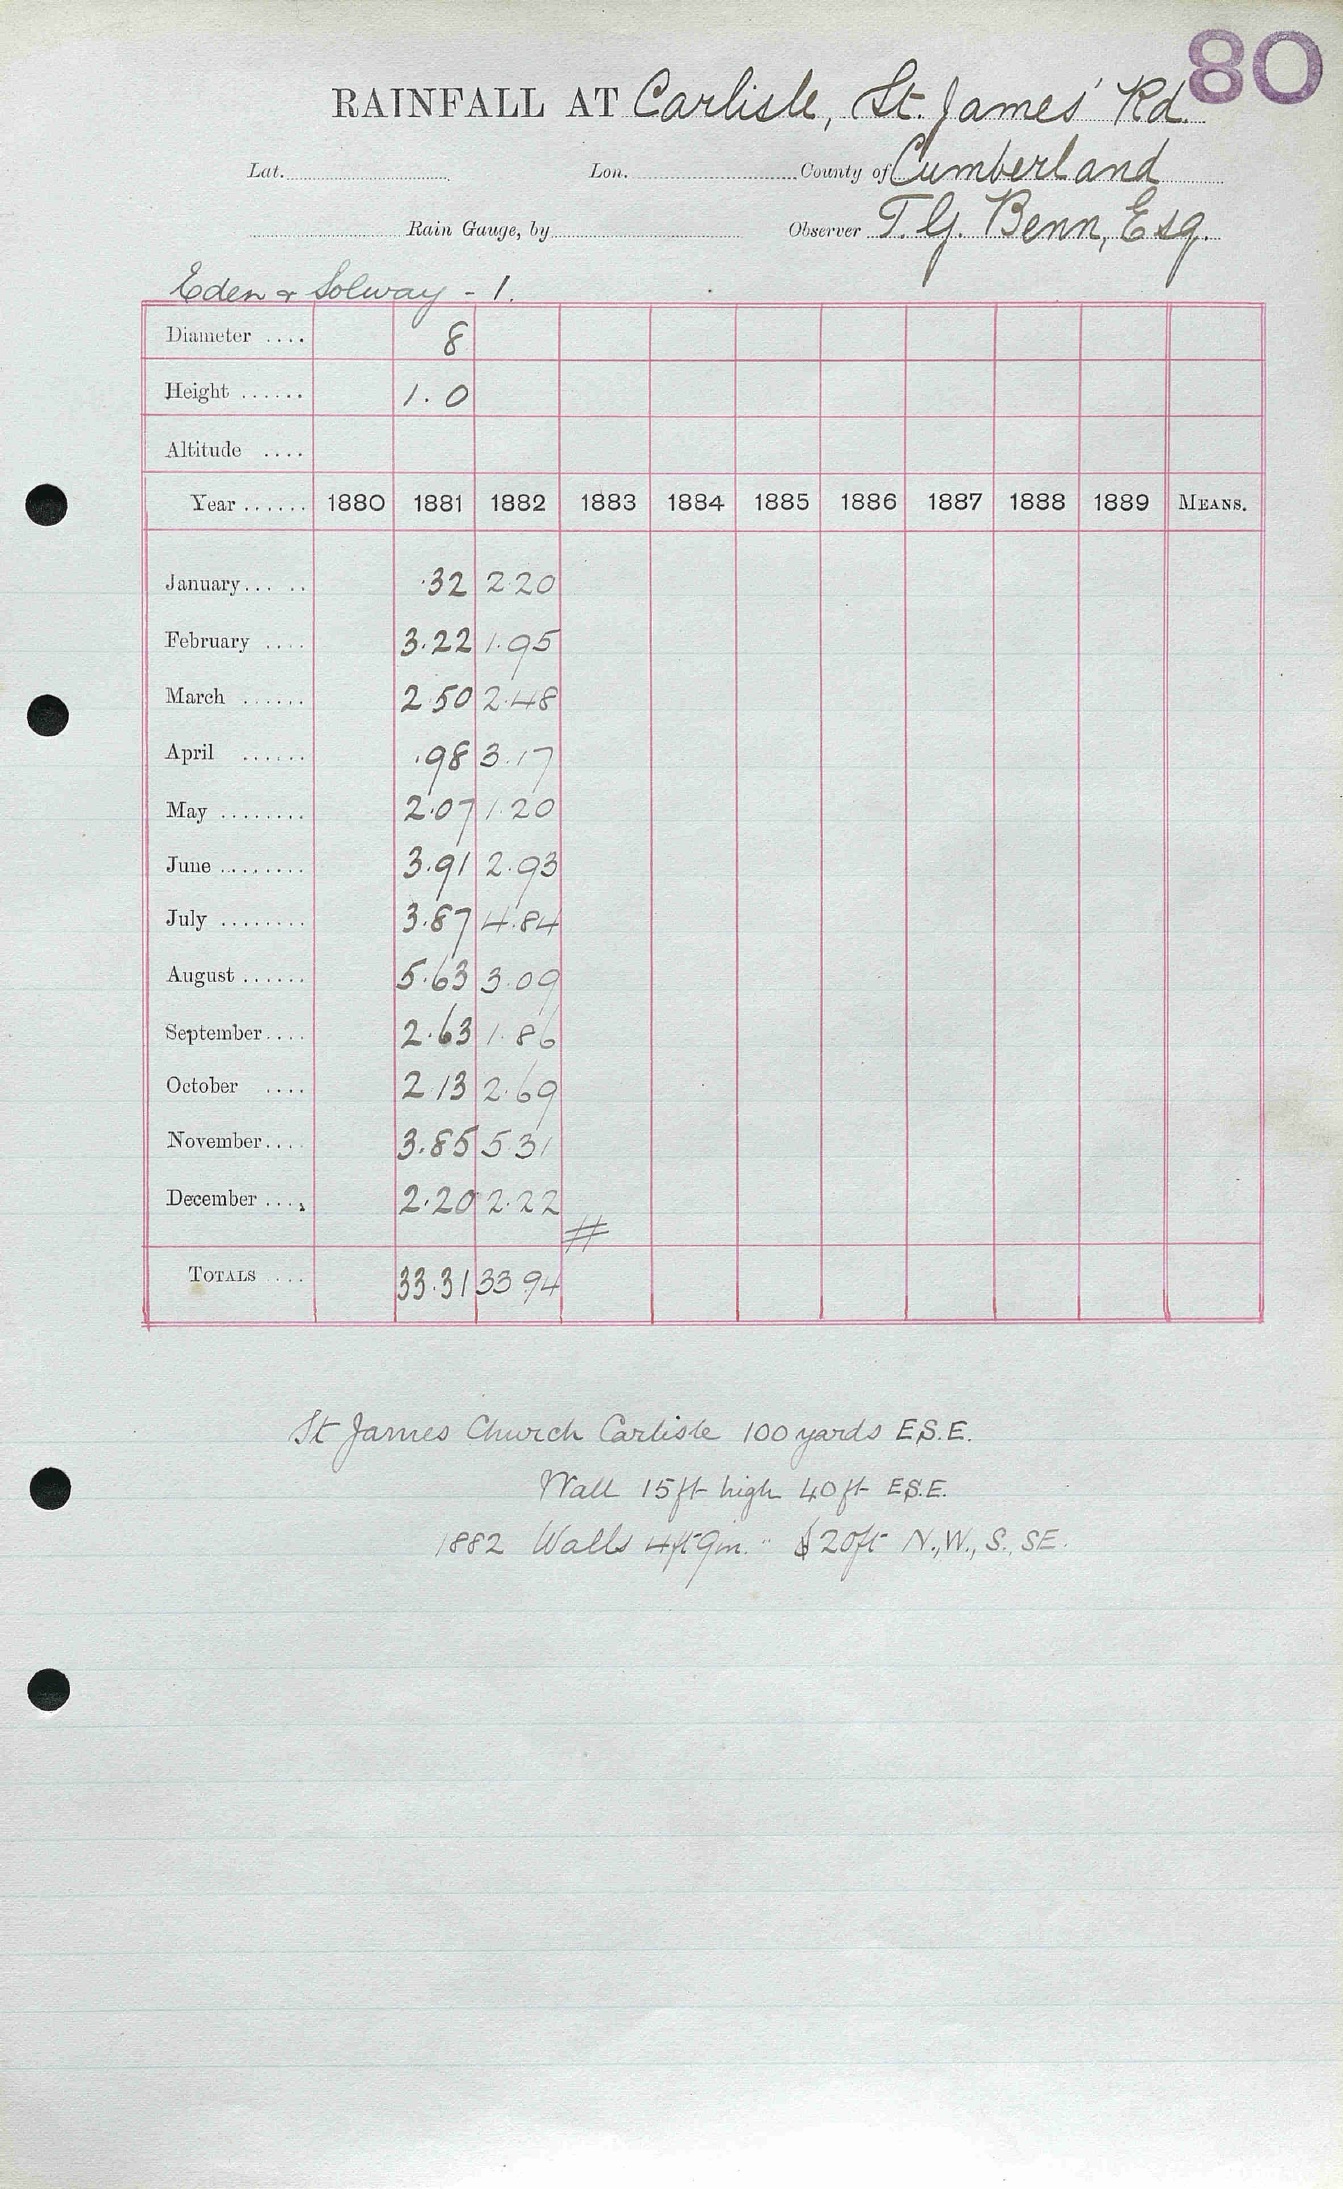 80
RAINFALL AT Carlisle, St. James' Rd.
Lat. Lon. County of Cumberland
Rain Gauge, by Observer T. G. Benn, Esq.
Eden & Solway - 1.
Diameter .... 8
Height ...... 1.0
Altitude ....
Year ...... 1880 1881 1882 1883 1884 1885 1886 1887 1888 1889 MEANS.
January... .. .32 2.20
February .... 3.22 1.95
March ...... 2.50 2.48
April ...... .98 3.17
May ........ 2.07 1.20
June ........ 3.91 2.93
July ........ 3.87 4.84
August ...... 5.63 3.09
September.... 2.63 1.86
October .... 2.13 2.69
November.... 3.85 5 31
December .... 2.20 2.22
#
TOTALS .... 33.31 33 94
St James Church Carlisle 100 yards E.S.E.
Wall 15ft high 40ft E.S.E.
1882 Walls 4ft 9in. " 20ft N., W., S., SE.